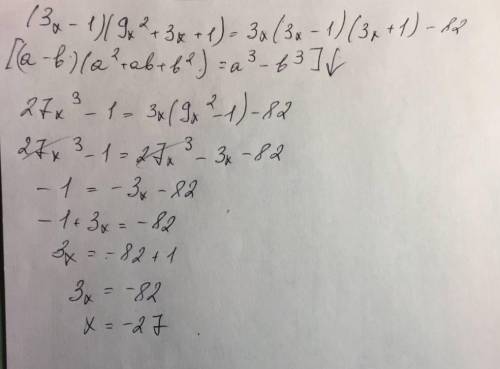 (3x - 1)(9x² + 3x + 1) = 3x(3x - 1)(3x + 1) - 82
[(a - b)(a² + ab + b²) = a³ - b³]↓
27x³ - 1 = 3x(9x² - 1) - 82
27x³ - 1 = 27x³ - 3x - 82
- 1 = - 3x - 82
- 1 + 3x = - 82
3x = - 82 + 1
3x = - 82
x = - 27